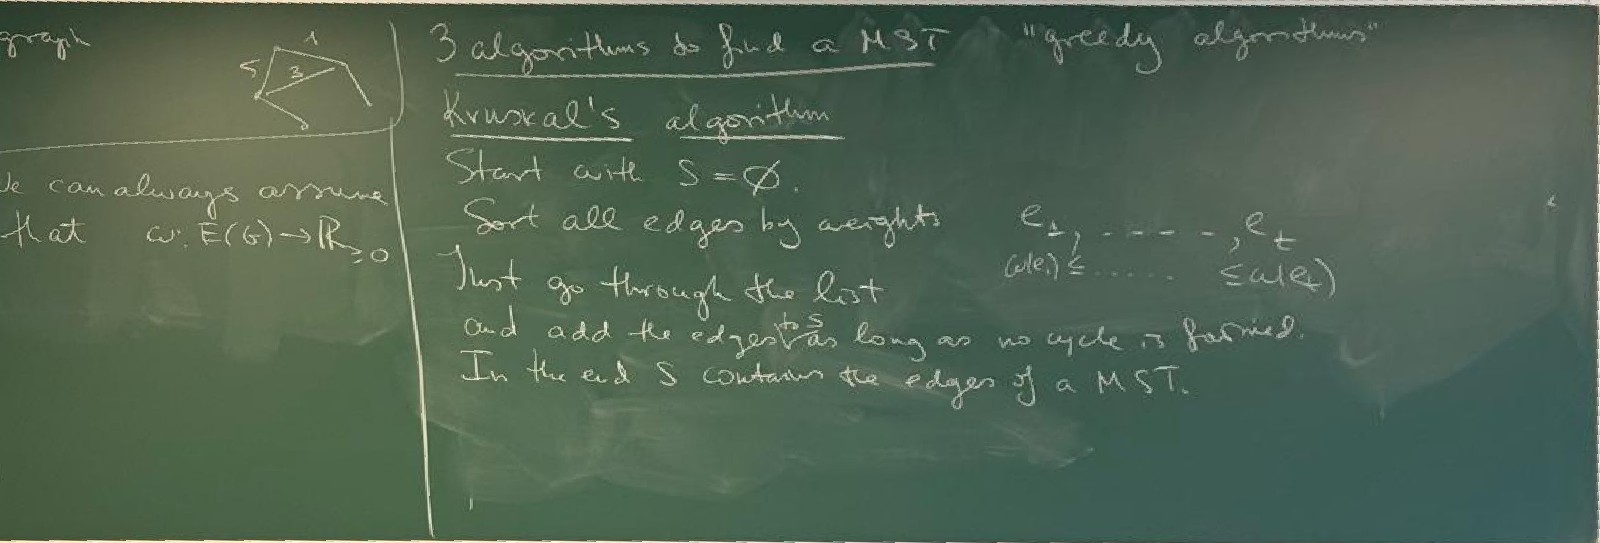 graph
1
5
3
we can always assume
that w: E(G) → ℝ≥0
3 algorithms to find a MST "greedy algorithms"
Kruskal's algorithm
Start with S = ∅.
Sort all edges by weights e₁, - - - - -, eₜ
w(e₁) ≤ ...... ≤ w(eₜ)
Just go through the list
and add the edges to S as long as no cycle is formed.
In the end S contains the edges of a MST.